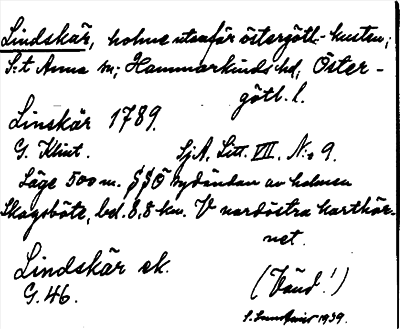 Lindskär, holme utanför östergötl.-kusten;
S:t Anna sn; Hammarkinds hd, Öster-
götl. l.
Linskär 1789.
G. Klint. SjA. Litt. VIII. N:o 9.
Läge 500 m. SSÖ sydändan av holmen
Skogsböte, bel. 8,8 km. V nordöstra karthör-
net.
Lindskär ek.
G. 46. (Vänd!)
1939.